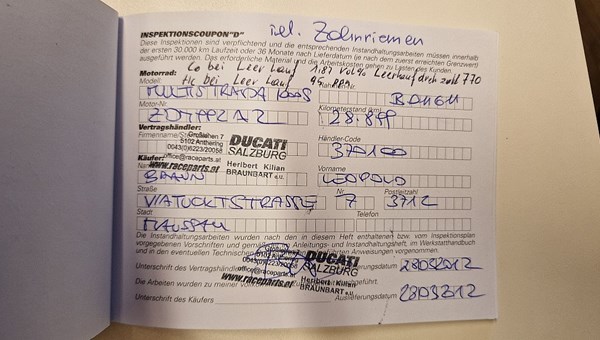 incl. Zahnriemen
INSPEKTIONSCOUPON "D"
Diese Inspektionen sind verpflichtend und die entsprechenden Instandhaltungsarbeiten müssen innerhalb
der ersten 30.000 km Laufzeit oder 36 Monate nach Lieferdatum (je nach dem zuerst erreichten Grenzwert)
ausgeführt werden. Das erforderliche Material und die Arbeitskosten gehen zu Lasten des Kunden.
Co bei Leerlauf 1.87 Vol% Leerlaufdrehzahl 770
Motorrad:
Hc bei Leerlauf 95 PPM
Modell:
MULTISTRADA 1000S
Motor-Nr.
Kilometerstand (km)
ZDM
28.899
Vertragshändler:
Großlehen 7
Händler-Code
Firmenname/
5102 Anthering
0043(0)6223/20056
DUCATI
SALZBURG
370100
Käufer:
office@raceparts.at
www.raceparts.at
Heribert Kilian
BRAUNBART e.U.
Vorname
BRAUN
LEOPOLD
Straße
Nr.
Postleitzahl
7
3712
Stadt
Telefon
MAISSAU
Die Instandhaltungsarbeiten wurden nach den in diesem Heft enthaltenen bzw. vom Inspektionsplan
vorgegebenen Vorschriften und gemäß Anleitungs- und Instandhaltungsheft, im Werkstatthandbuch
und in den eventuellen Technischen Anweisungen vorgenommen.
DUCATI
SALZBURG
office@raceparts.at
www.raceparts.at
Heribert Kilian
BRAUNBART e.U.
Unterschrift des Vertragshändlers
Auslieferungsdatum
28032012
Die Arbeiten wurden zu meiner
Unterschrift des Käufers
Auslieferungsdatum
28032012